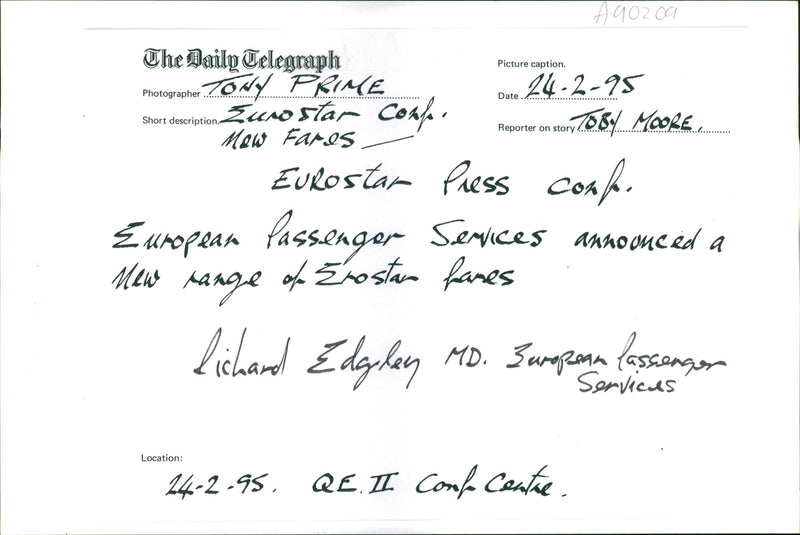 A90209
The Daily Telegraph
Picture caption.
Photographer TONY PRIME
Date 24-2-95
Short description Eurostar Conf.
New Fares —
Reporter on story TOBY MOORE.
EUROStar Press Conf.
European Passenger Services announced a
New range of Erostar fares
Richard Edgley MD. European Passenger
Services
Location:
24-2-95. QE.II Conf Centre.